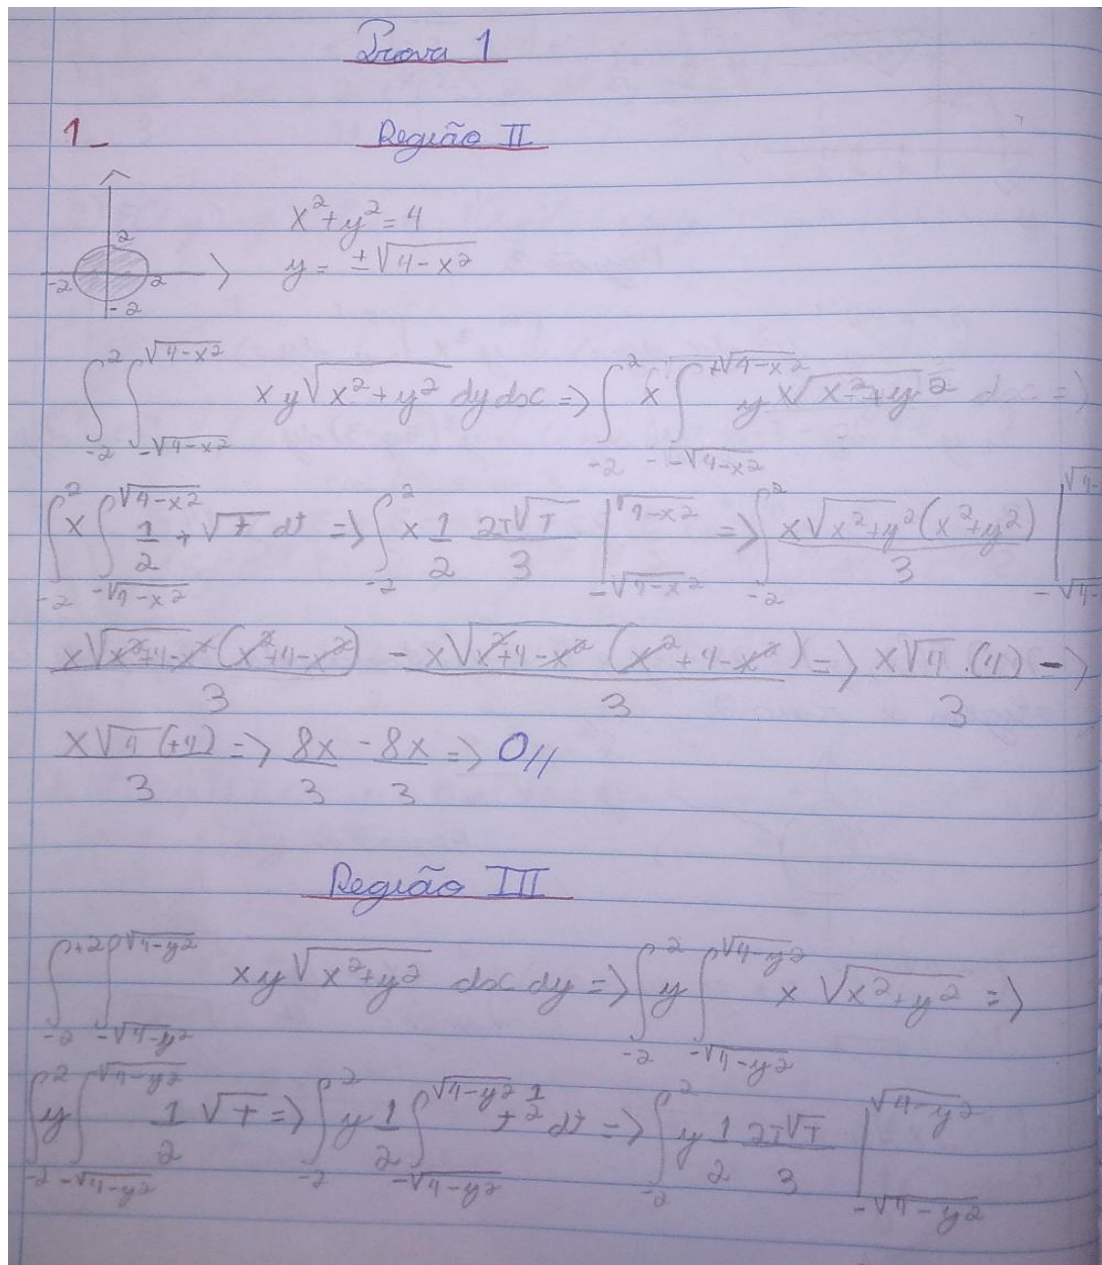 Prova 1
1_ Região II
x²+y²=4
2
y = ±√4-x²
-2 2
-2
∫_-2^2 ∫_-√4-x²^√4-x² xy√x²+y² dy dx => ∫_-2^2 x ∫_-√4-x²^+√4-x² y x√x²+y² dx =>
∫_-2^2 x ∫_-√4-x²^√4-x² 1/2 √t dt => ∫_-2^2 x 1/2 2t√t/3 |_-√4-x²^√4-x² => ∫_-2^2 x√x²+y²(x²+y²)/3 |_-√4-^√4-
x√x²+4-x²(x²+4-x²)/3 - x√x²+4-x²(x²+4-x²)/3 => x√4.(4)/3 ->
x√4(+4)/3 => 8x/3 - 8x/3 => 0//
Região III
∫_-2^+2 ∫_-√4-y²^√4-y² xy√x²+y² dx dy => ∫_-2^2 y ∫_-√4-y²^√4-y² x √x²+y² =>
∫_-2^2 y ∫_-√4-y²^√4-y² 1/2 √t => ∫_-2^2 y 1/2 ∫_-√4-y²^√4-y² t^1/2 dt => ∫_-2^2 y 1/2 2t√t/3 |_-√4-y²^√4-y²